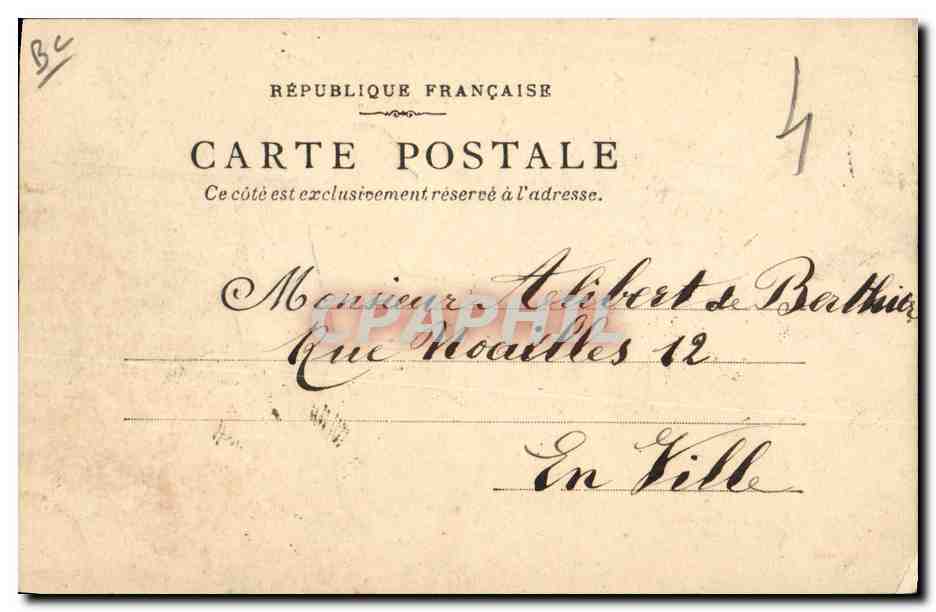 Bc
4
RÉPUBLIQUE FRANÇAISE
CARTE POSTALE
Ce côté est exclusivement réservé à l'adresse.
Monsieur Alibert de Berthier
CPAPHIL
Rue Noailles 12
En Ville